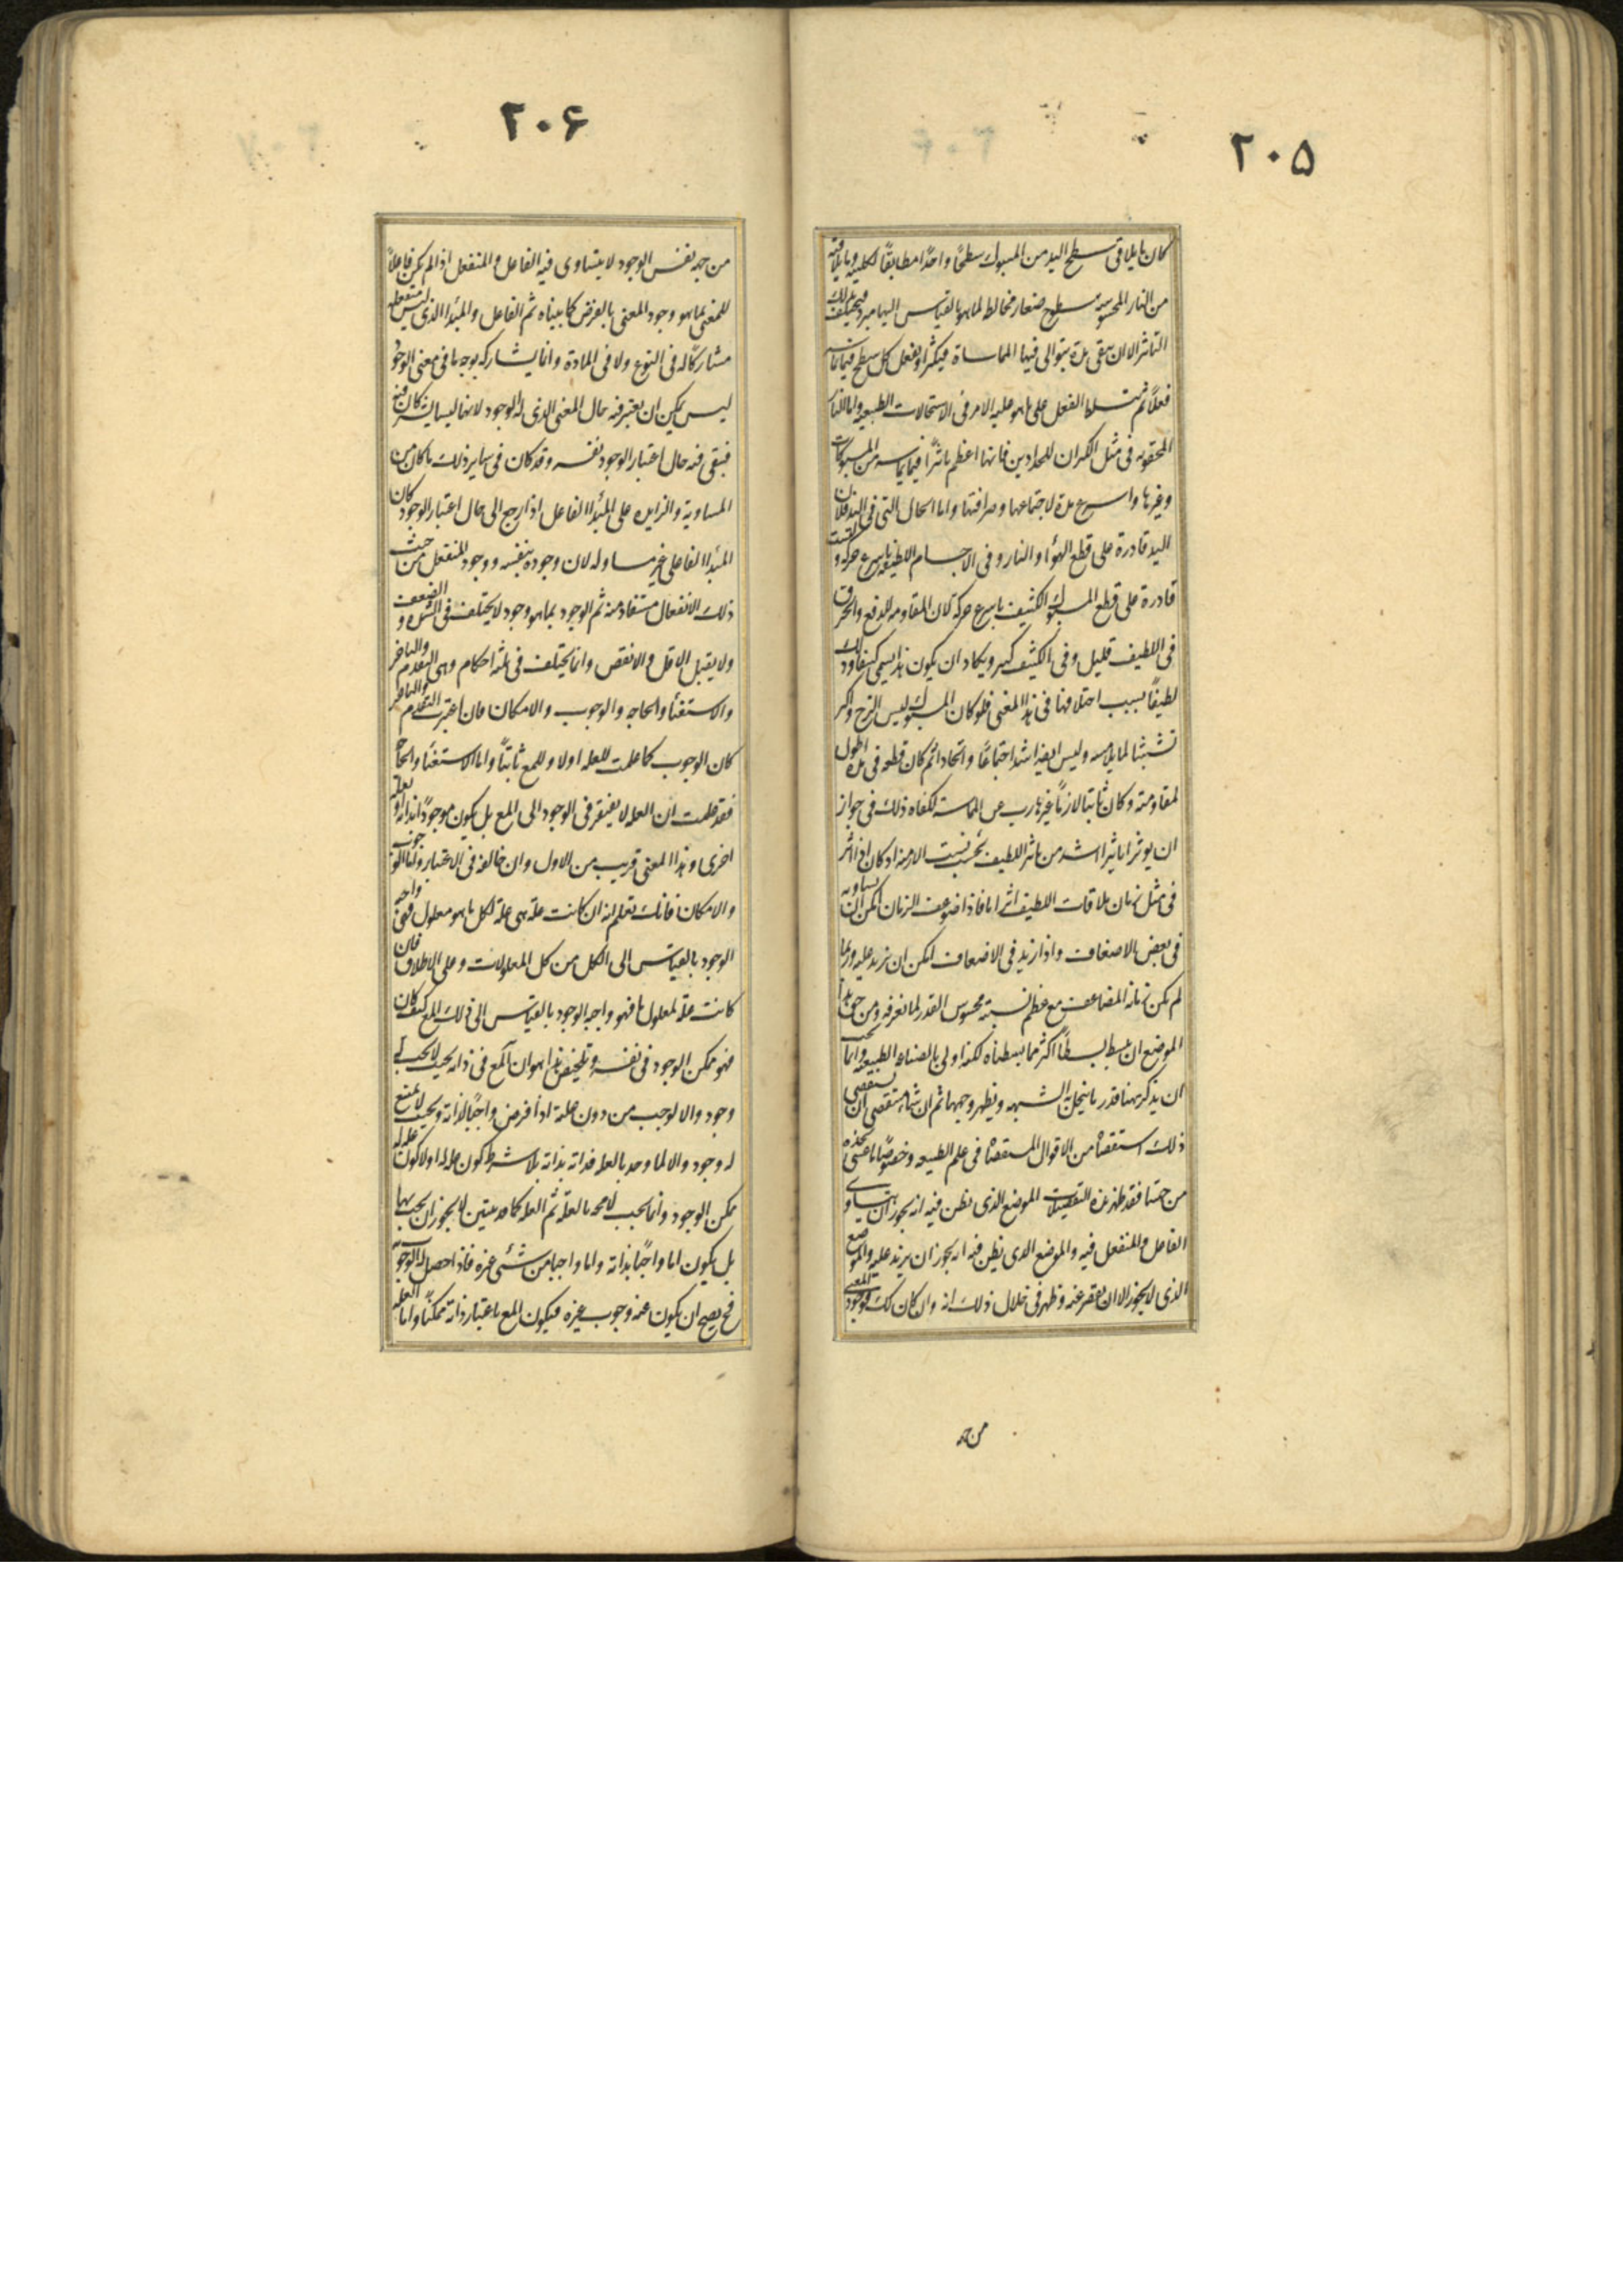 ۲۰۵
كان ما يلاقى سطح اليد من المسبوك سطحًا واحدًا مطابقًا لكليته وما يلاقيه
من النار المحسوسه سطوح صغار مخالط لما هو بالقياس اليها مبرد فيختلف لذلك
التاثر الا ان يبقى مدة يتوالى فيها المماساة فيكثر او يفعل كل سطح فيما يماسه
فعلًا ثم يتسلط الفعل على ما هو عليه الامر فى الاستحالات الطبيعيه واما النار
المحقونه فى مثل الكيران للحدادين فانها اعظم تاثيرًا فيما يماسه من المسبوكات
وغيرها واسرع مدة لاجتماعها وصرافتها واما الحال التى فى اليد فلان
اليد قادرة على قطع الهوٓاء والنار وفى الاجسام اللطيفه باسرع حركه وليست
قادرة على قطع المسبوك الكثيف باسرع حركة لان المقاومه للدفع والخرق
فى اللطيف قليل وفى الكثيف كبير ويكاد ان يكون هذا يسمى كثيفًا وذلك
لطيفًا بسبب اختلافهما فى هذا المعنى فلو كان المسبوك ليس الزج واكثر
تشبثا لما يلامسه وليس ايضا اشد اجتماعًا واتحادا ثم كان قطعه فى مدة اطول
لمقاومته وكان ثابتا لازمًا غير هارب عن المماسة لكفاه ذلك فى جواز
ان يوثر تاثيرا اشد من تاثير اللطيف بحسب نسبت الازمنه اذ كان اذا اثر
فى مثل زمان ملاقات اللطيف اثرا ما فاذا ضوعف الزمان امكن ان يساويه
فى بعض الاضعاف واذا زيد فى الاضعاف امكن ان يزيد عليه وربما
لم يكن زمانه المضاعف مع عظم نسبته محسوس القدر لما نعرفه ومن حق هذا
الموضع ان يبسط بسطًا اكثر مما بسطناه لكنه اولى بالصناعه الطبيعيه وانما يجب
ان يذكر ههنا قدر ما ينحل به الشبهه ويظهر وجهها ثم ان شاء مستقصى ان يستقصى
ذلك استقصاه من الاقوال المستقصاة فى علم الطبيعه وخصوصًا ما عسى يجده
من جهتنا فقد ظهر هذه التفصيلات الموضع الذى يظن فيه انه يجوز ان يتساوى
الفاعل والمنفعل فيه والموضع الذى يظن فيه انه يجوز ان يزيد عليه والموضع
الذى لا يجوز الا ان يقصر عنه وظهر فى خلال ذلك انه وان كان كك فوجود المعنى
من جهة
۲۰۶
من جهة نفس الوجود لا يتساوى فيه الفاعل والمنفعل اذا لم يكن فاعلًا
للمعنى بما هو وجود المعنى بالعرض كما بيناه ثم الفاعل والمبدٔا الذى ليس منفعله
مشاركًا له فى النوع ولا فى المادة وانما يشاركه بوجه ما فى معنى الوجود
ليس يمكن ان يعتبر فيه حال المعنى الذى له الوجود لانهما ليسا يشتركان فيه
فبقى فيه حال اعتبار الوجود نفسه وقد كان فى ساير ذلك ما كان من
المساوية والزايده على المبدٔا الفاعل اذا رجع الى حال اعتبار الوجود كان
المبدٔا الفاعلى غير مساو له لان وجوده بنفسه ووجود المنفعل من حيث
ذلك الانفعال مستفاد منه ثم الوجود بما هو وجود لا يختلف فى الشدة والضعف
ولا يقبل الاقل والانقص وانما يختلف فى ثلثه احكام وهى التقدم والتاخر
والاستغنٓا والحاجه والوجوب والامكان فان اعتبرت التقدم والتاخر
كان الوجوب كما علمت للعله اولا وللمع ثانيًا واما الاستغنٓا والحاجة
فقد علمت ان العله لا يفتقر فى الوجود الى المع بل يكون موجودًا بذاته او بعلة
اخرى وهذا المعنى قريب من الاول وان خالفه فى الاعتبار واما الوجوب
والامكان فانك تعلم انه ان كانت علة هى علة لكل ما هو معلول فهى واجبه
الوجود بالقياس الى الكل من كل المعلولات وعلى الاطلاق فان
كانت علة لمعلول ما فهو واجبه الوجود بالقياس الى ذلك المع كيف كان
فهو ممكن الوجود فى نفسه وتلخيص هذا هو ان المع فى ذاته بحيث لا يجب له
وجود والا لوجب من دون علته اذا فرض واجبًا لذاته وبحيث لا يمتنع
له وجود والا لما وجد بالعله فذاته بذاته بلا شرط كون عله له اولا كون عله له
ممكن الوجود وانما يجب لا محه بالعلة ثم العله كما قد بيتين لا يجوز ان يجب بها
بل يكون اما واجبًا بذاته واما واجبا من شىء غيره فاذا حصل له الوجوب
فح يصح ان يكون عنه وجوب غيره فيكون المع باعتبار ذاته ممكنًا واما العله